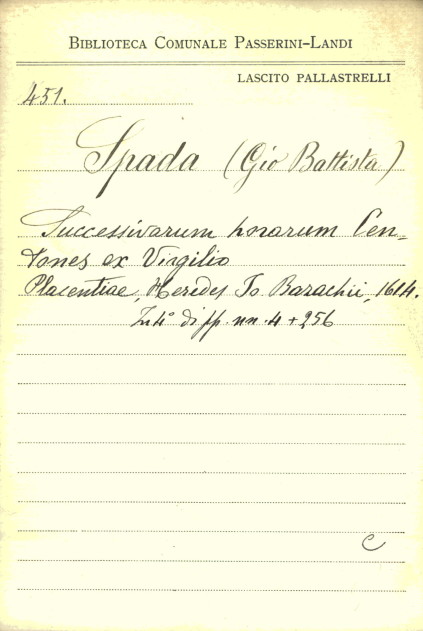 BIBLIOTECA COMUNALE PASSERINI-LANDI
LASCITO PALLASTRELLI
451.
Spada (Gio Battista)
Successivarum horarum Cen-
tones ex Virgilio
Placentiae, Heredes Io Bazachii, 1614.
In 4° di pp. nn. 4 + 256
C